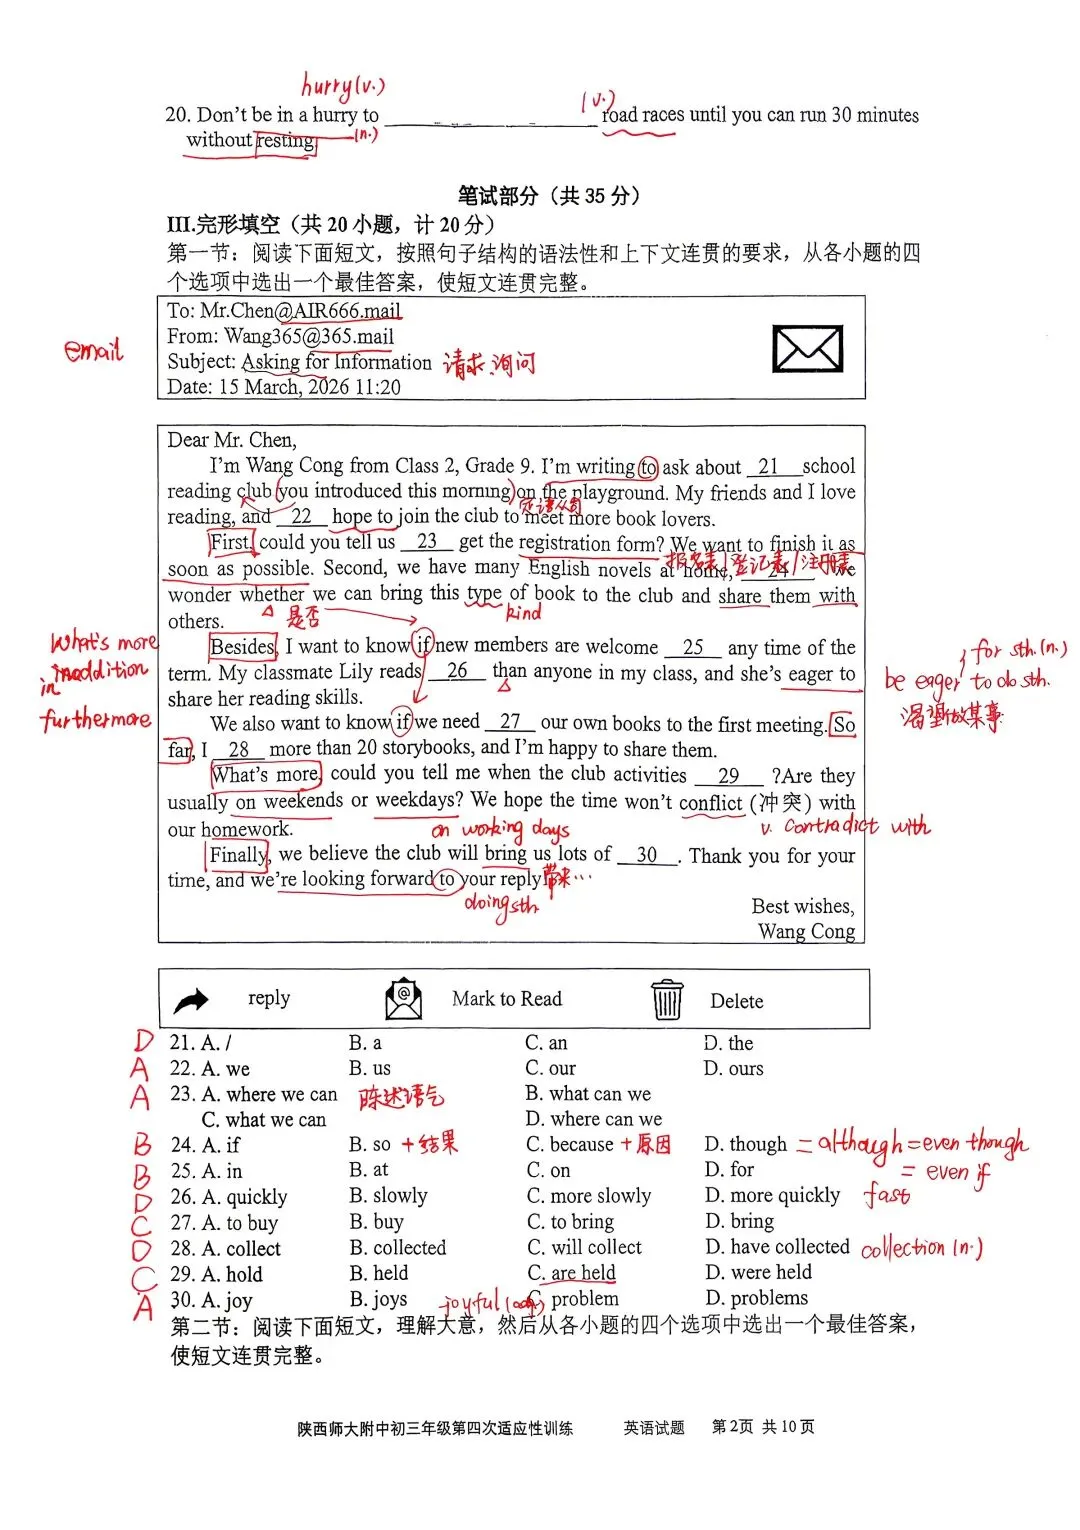 hurry(v.)
(v.)
20. Don't be in a hurry to ____________ road races until you can run 30 minutes
without resting.
(n.)
笔试部分（共 35 分）
III.完形填空（共 20 小题，计 20 分）
第一节：阅读下面短文，按照句子结构的语法性和上下文连贯的要求，从各小题的四
个选项中选出一个最佳答案，使短文连贯完整。
To: Mr.Chen@AIR666.mail
From: Wang365@365.mail
email
Subject: Asking for Information 请求、询问
Date: 15 March, 2026 11:20
Dear Mr. Chen,
I'm Wang Cong from Class 2, Grade 9. I'm writing to ask about 21 school
reading club (you introduced this morning) on the playground. My friends and I love
定语从句
reading, and 22 hope to join the club to meet more book lovers.
First, could you tell us 23 get the registration form? We want to finish it as
报名表/登记表/注册表
soon as possible. Second, we have many English novels at home, 24 we
wonder whether we can bring this type of book to the club and share them with
是否
kind
others.
Besides, I want to know if new members are welcome 25 any time of the
What's more
in addition
in
furthermore
term. My classmate Lily reads 26 than anyone in my class, and she's eager to
be eager for sth.(n.)
to do sth.
渴望做某事
share her reading skills.
We also want to know if we need 27 our own books to the first meeting. So
far, I 28 more than 20 storybooks, and I'm happy to share them.
What's more, could you tell me when the club activities 29 ?Are they
usually on weekends or weekdays? We hope the time won't conflict (冲突) with
our homework.
on working days
v. contradict with
Finally, we believe the club will bring us lots of 30 . Thank you for your
time, and we're looking forward to your reply!
带来…
doing sth.
Best wishes,
Wang Cong
reply Mark to Read Delete
D 21. A. / B. a C. an D. the
A 22. A. we B. us C. our D. ours
A 23. A. where we can 陈述语气 B. what can we
C. what we can D. where can we
B 24. A. if B. so +结果 C. because +原因 D. though = although = even though
= even if
B 25. A. in B. at C. on D. for
D 26. A. quickly B. slowly C. more slowly D. more quickly fast
C 27. A. to buy B. buy C. to bring D. bring
D 28. A. collect B. collected C. will collect D. have collected collection (n.)
C 29. A. hold B. held C. are held D. were held
A 30. A. joy B. joys joyful(adj.) C. problem D. problems
第二节：阅读下面短文，理解大意，然后从各小题的四个选项中选出一个最佳答案，
使短文连贯完整。
陕西师大附中初三年级第四次适应性训练 英语试题 第 2页 共 10 页